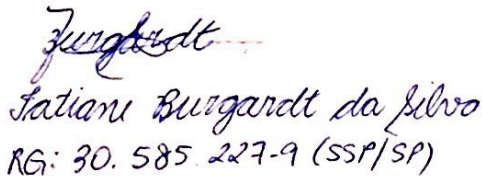 Burgardt
Tatiane Burgardt da Silva
RG: 30.585.227-9 (SSP/SP)